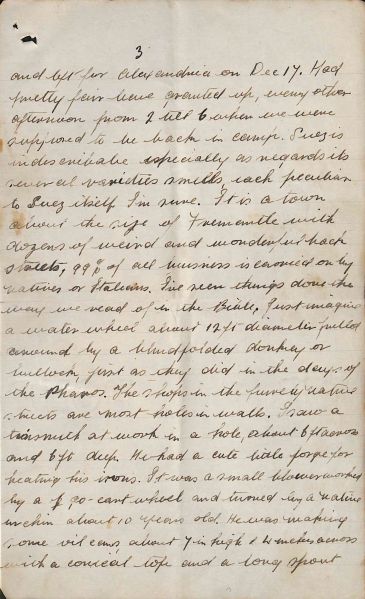 3
and left for Alexandria on Dec 17. Had
pretty fair leave granted up, every other
afternoon from 2 till 6 when we were
supposed to be back in camp. Suez is
indescribable especially as regards its
several varieties smells, each peculiar
to Suez itself I'm sure. It is a town
about the size of Fremantle with
dozens of weird and wonderful back
streets, 99% of all business is carried on by
natives or Italians. I've seen things done the
way we read of in the Bible. Just imagine
a water wheel about 12ft diameter pulled
around by a blindfolded donkey or
bullock, just as they did in the days of
the Pharos. The shops in the purely native
streets are most holes in walls. I saw a
tinsmith at work in a hole, about 6ft across
and 6ft deep. He had a cute little forge for
heating his irons. It was a small blower worked
by a go-cart wheel and turned by a native
urchin about 10 years old. He was making
some oil cans, about 7 in high & 4 inches across
with a conical top and a long spout